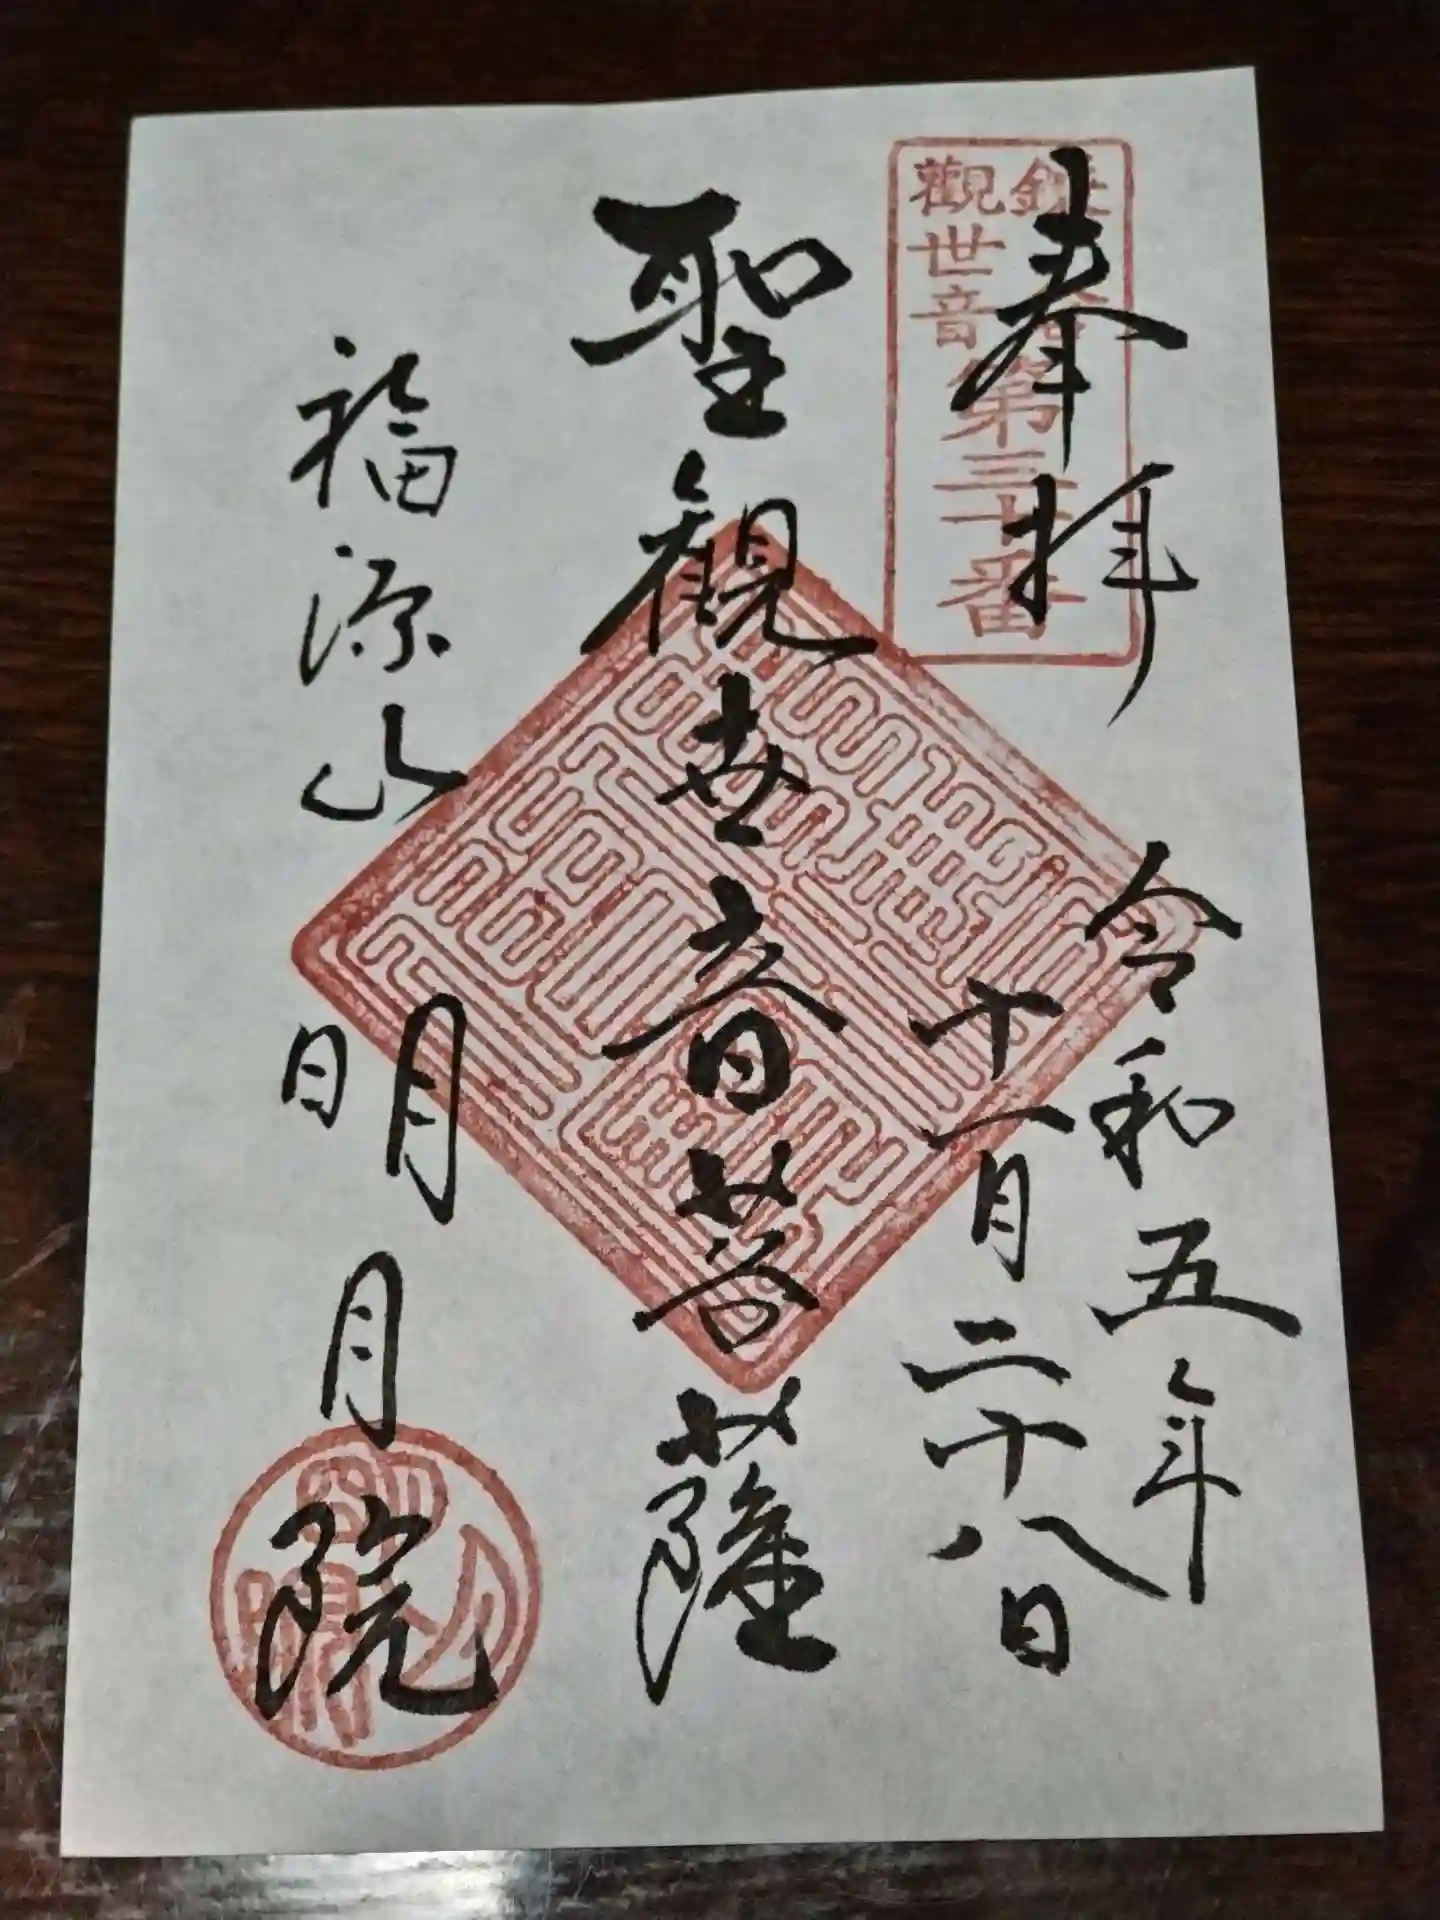 奉拝
令和五年
十一月二十八日
鎌倉
觀世音
第三十番
聖観世音菩薩
福源山
明月院